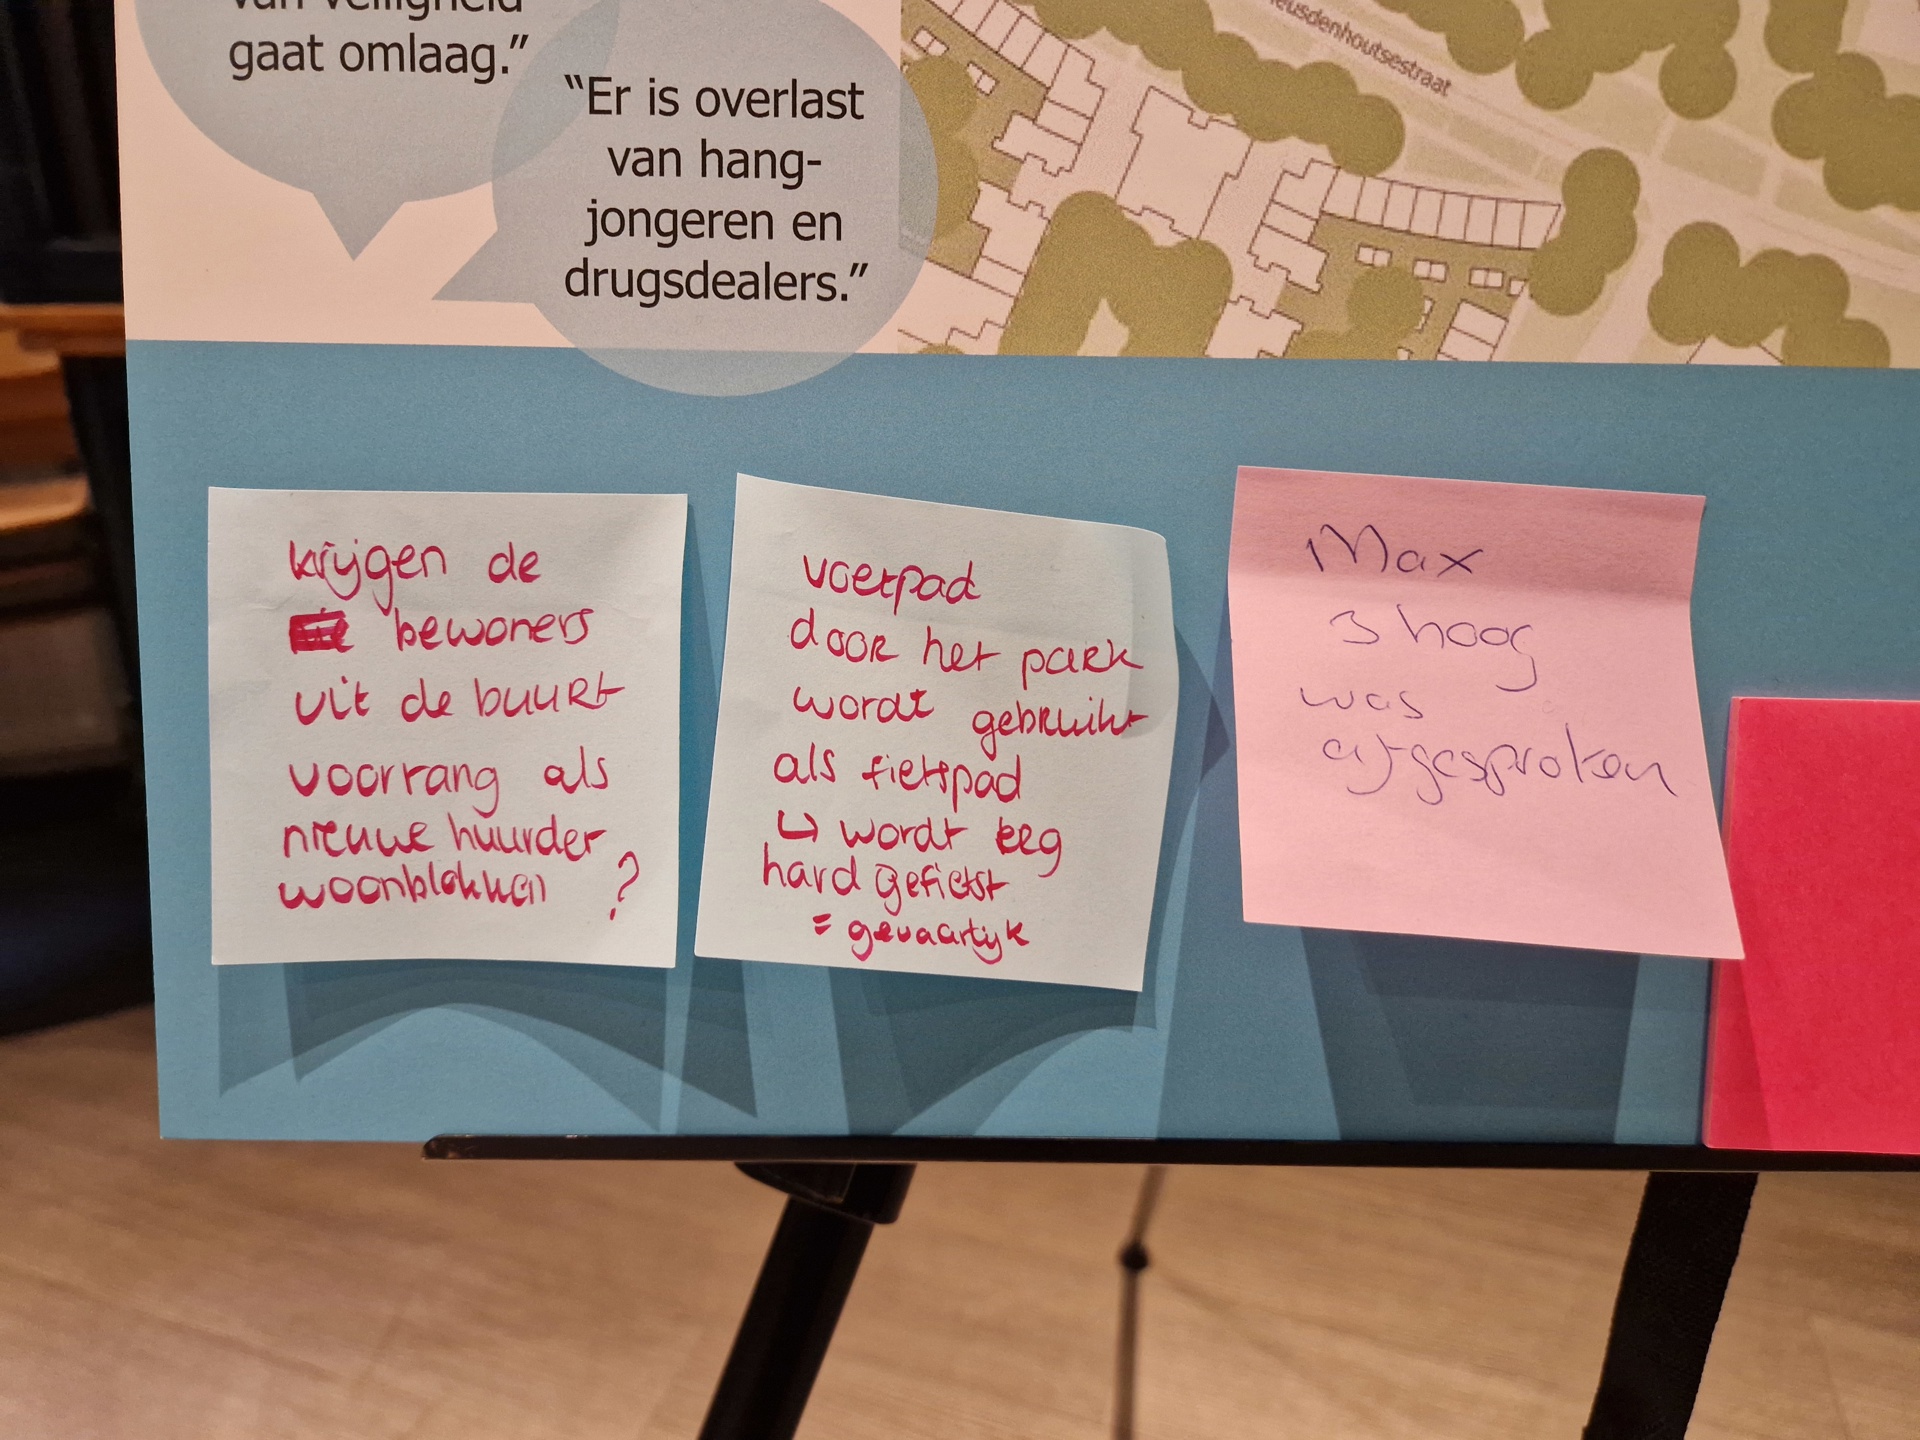 van veiligheid
gaat omlaag.”
“Er is overlast
van hang-
jongeren en
drugsdealers.”
Heusdenhoutsestraat
krijgen de
bewoners
uit de buurt
voorrang als
nieuwe huurder
woonblokken ?
voetpad
door het park
wordt gebruikt
als fietspad
↳ wordt erg
hard gefietst
= gevaarlijk
Max
3 hoog
was
afgesproken